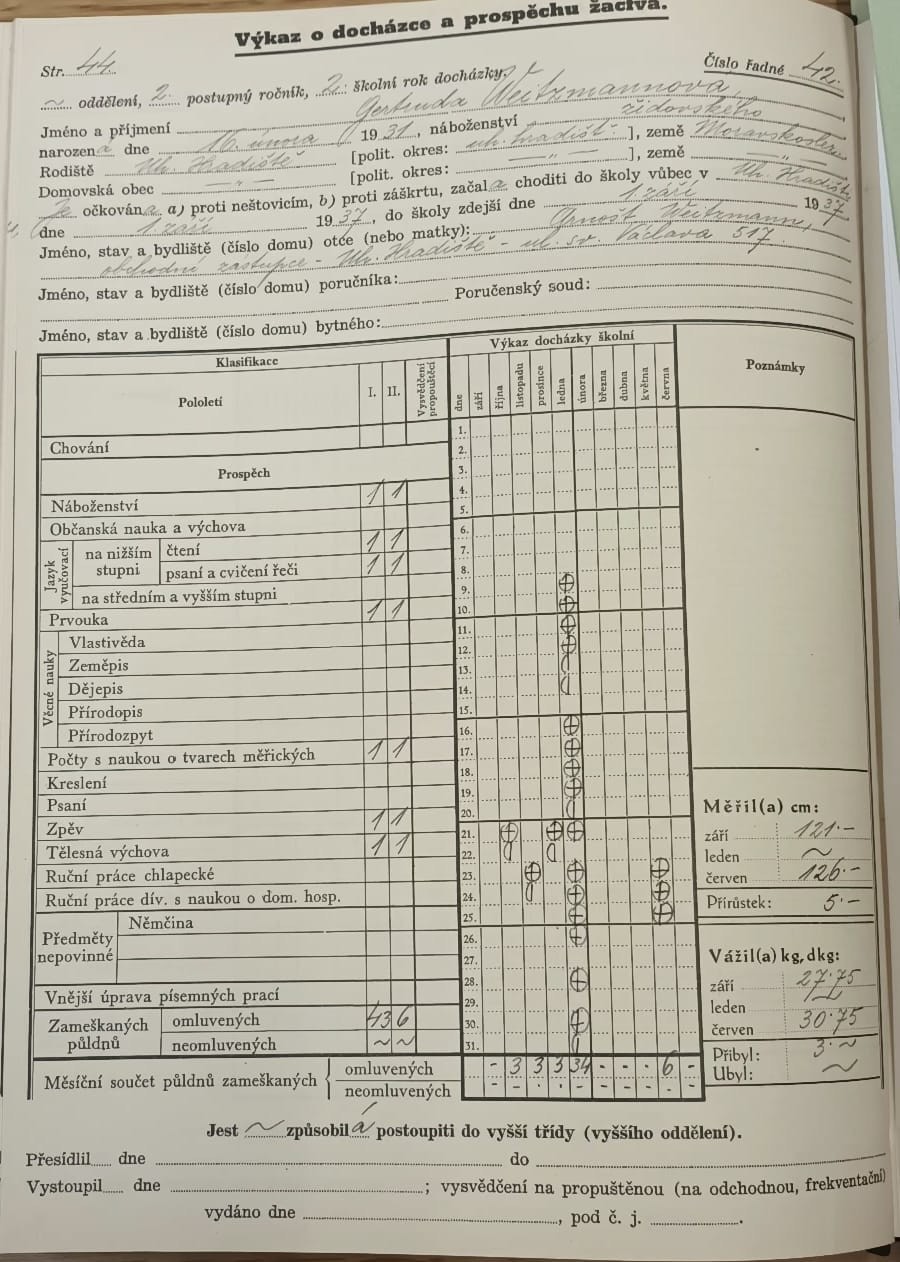 Výkaz o docházce a prospěchu žactva.
Str. 44.
Číslo řadné 42.
~ oddělení, 2. postupný ročník, 2. školní rok docházky.
Jméno a příjmení Gertruda Weitzmannova,
narozena dne 16. února 1931, náboženství židovského
Rodiště Uh. Hradiště [polit. okres: uh. hradišť. ], země
Domovská obec — „ — [polit. okres: — „ — ], země — „ —
Je očkována a) proti neštovicím, b) proti záškrtu, začala choditi do školy vůbec v Uh. Hradišti
dne 1. září 1937, do školy zdejší dne 1. září 1937
Jméno, stav a bydliště (číslo domu) otce (nebo matky): Arnošt Weitzmann,
obchodní zástupce - Uh. Hradiště - ul. sv. Václava 517.
Jméno, stav a bydliště (číslo domu) poručníka:
Poručenský soud:
Jméno, stav a bydliště (číslo domu) bytného:
Klasifikace
Výkaz docházky školní
Poznámky
Pololetí I. II. Vysvědčení propouštěcí
dne září října listopadu prosince ledna února března dubna května června
Chování
Prospěch
Náboženství 1 1
Občanská nauka a výchova
Jazyk vyučovací
na nižším stupni
čtení 1 1
psaní a cvičení řeči 1 1
na středním a vyšším stupni
Prvouka 1 1
Věcné nauky
Vlastivěda
Zeměpis
Dějepis
Přírodopis
Přírodozpyt
Počty s naukou o tvarech měřických 1 1
Kreslení
Psaní
Zpěv 1 1
Tělesná výchova 1 1
Ruční práce chlapecké
Ruční práce dív. s naukou o dom. hosp.
Předměty nepovinné
Němčina
Vnější úprava písemných prací
Zameškaných půldnů
omluvených 43 6
neomluvených ~ ~
1.
2.
3.
4.
5.
6.
7.
8.
9.
10.
11.
12.
13.
14.
15.
16.
17.
18.
19.
20.
21.
22.
23.
24.
25.
26.
27.
28.
29.
30.
31.
Měřil(a) cm:
září 121·-
leden ~
červen 126·-
Přírůstek: 5·-
Vážil(a) kg, dkg:
září 27·75
leden
červen 30·75
Přibyl: 3·~
Ubyl: ~
Měsíční součet půldnů zameškaných
omluvených - 3 3 3 34 - - - 6 -
neomluvených - - - - - - - - - -
Jest ~ způsobilá postoupiti do vyšší třídy (vyššího oddělení).
Přesídlil dne do
Vystoupil dne ; vysvědčení na propuštěnou (na odchodnou, frekventační)
vydáno dne , pod č. j. .